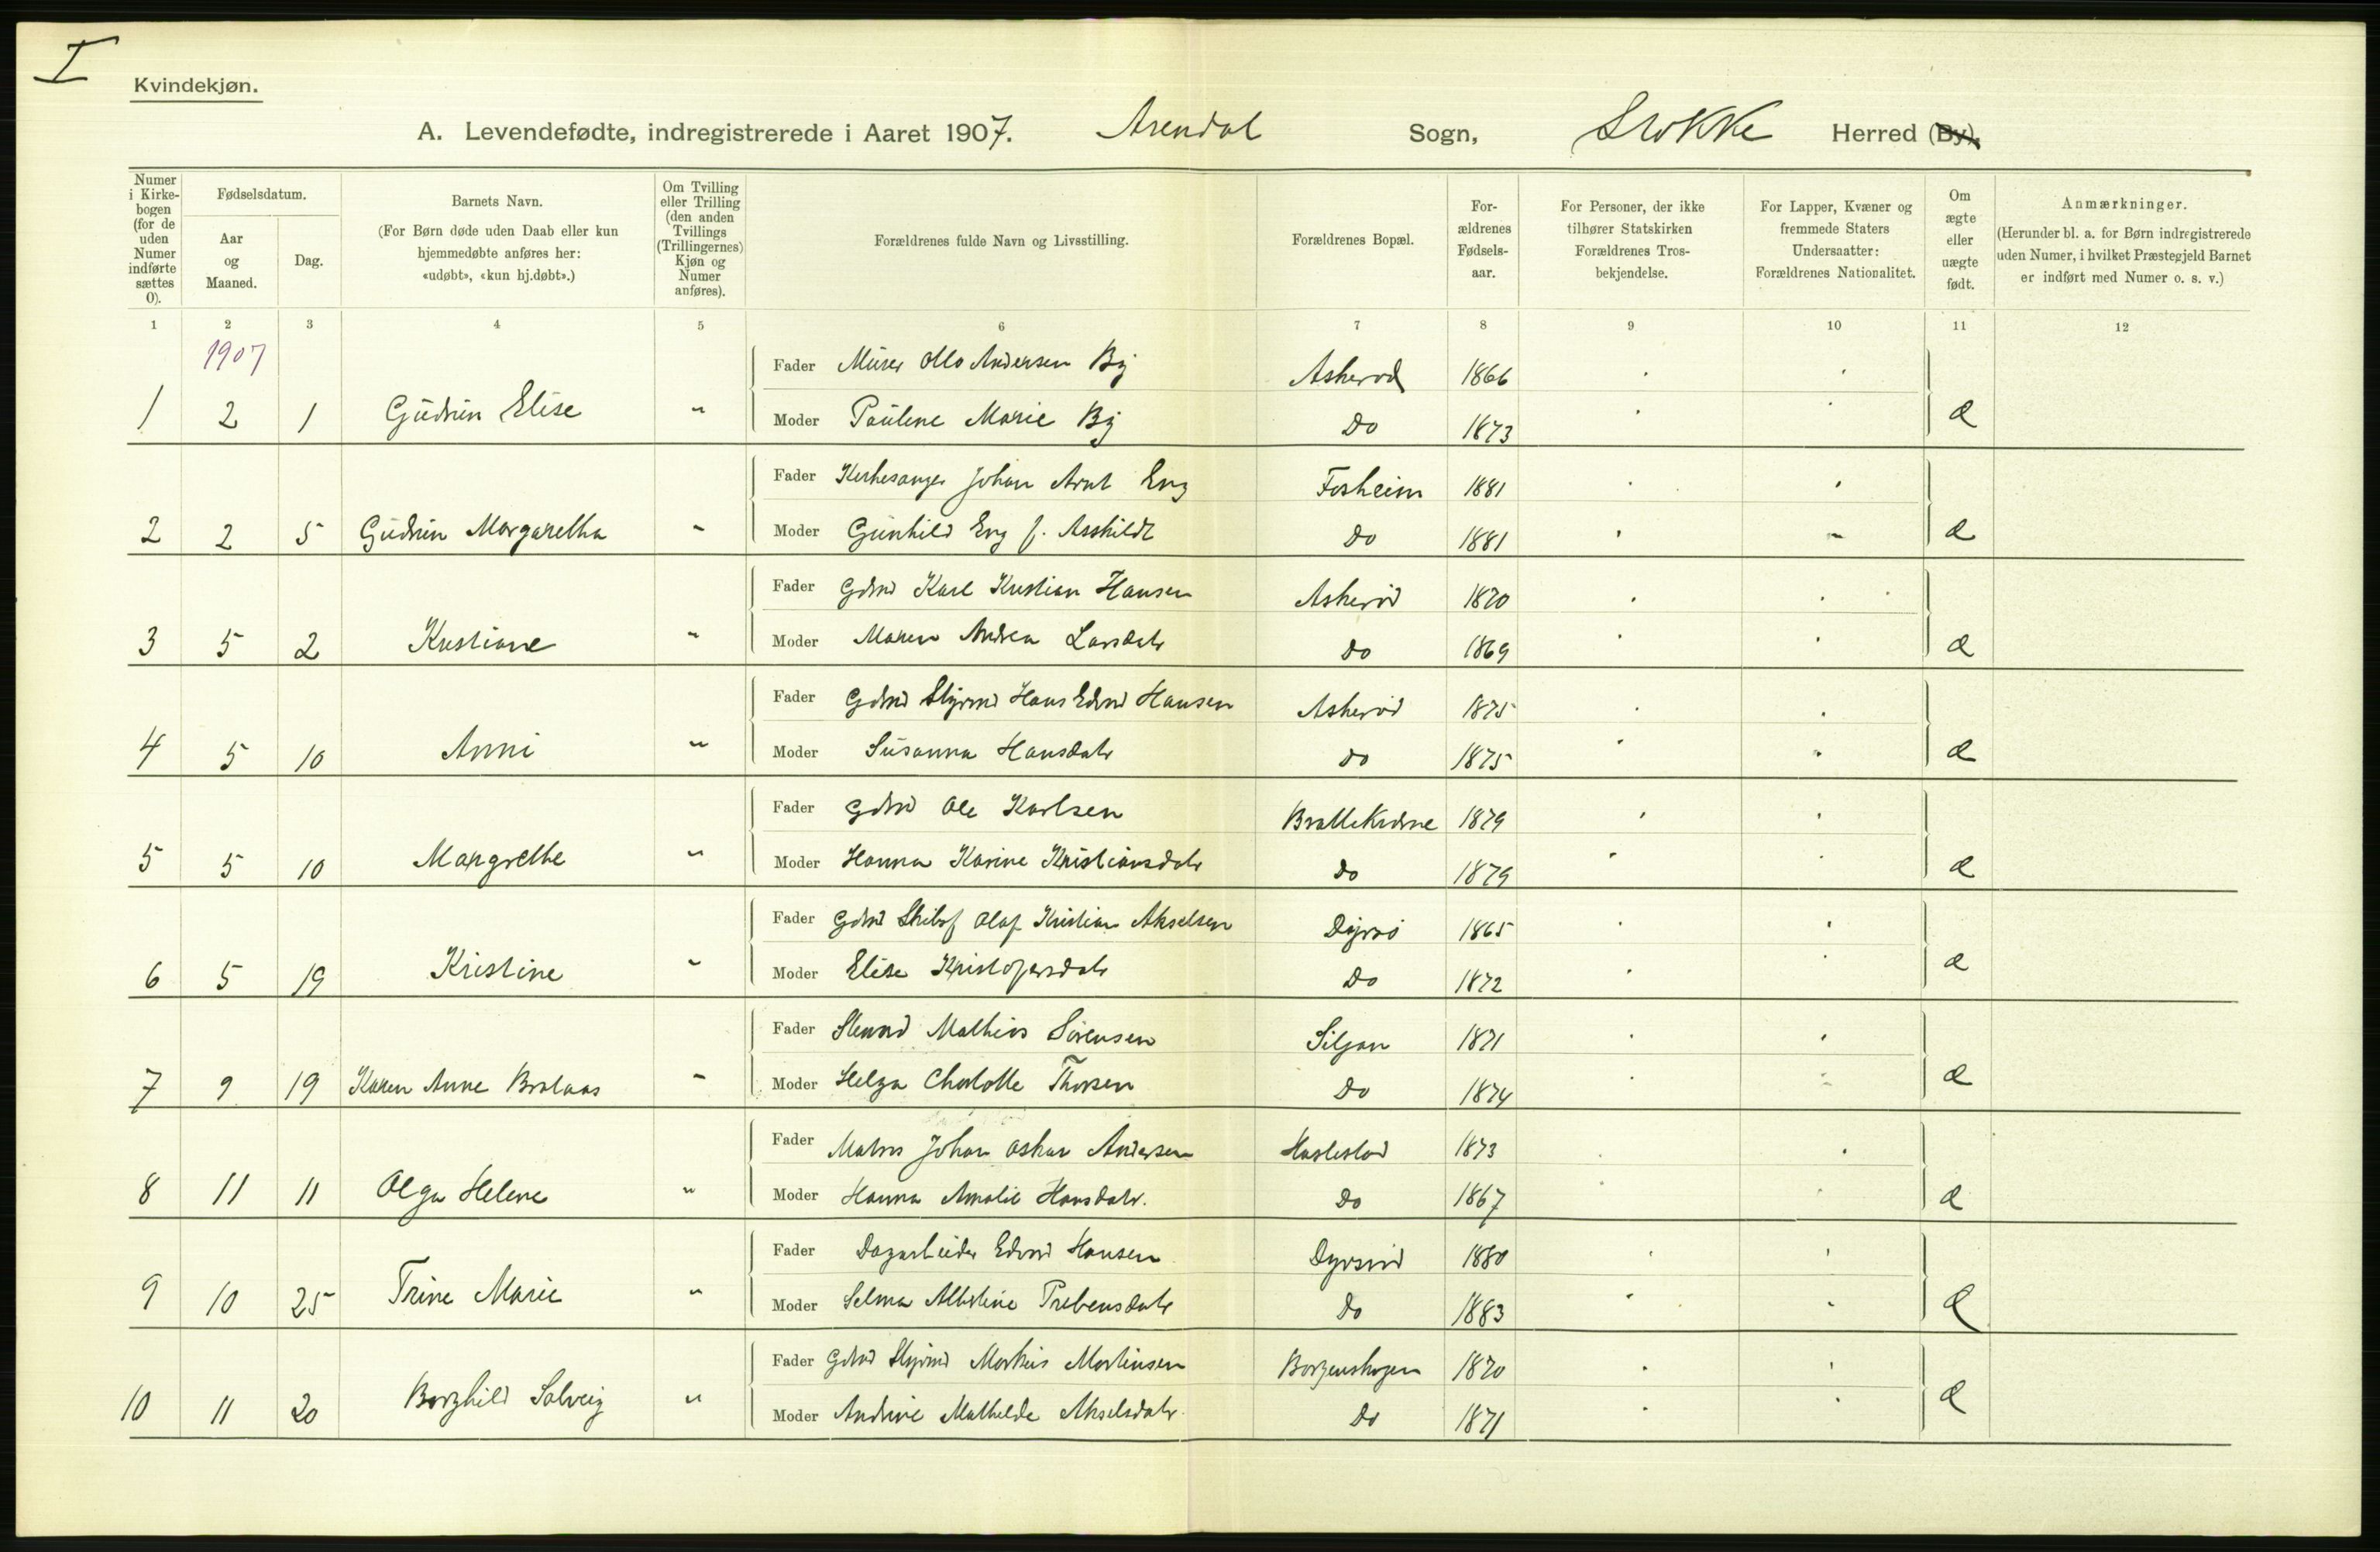 I
Kvindekjøn.
A. Levendefødte, indregistrerede i Aaret 1907. Arendal Sogn, Stokke Herred (By).
Numer i Kirkebogen (for de uden Numer indførte sættes 0).
Fødselsdatum.
Aar og Maaned.
Dag.
Barnets Navn.
(For Børn døde uden Daab eller kun hjemmedøbte anføres her: «udøbt», «kun hj.døbt».)
Om Tvilling eller Trilling (den anden Tvillings (Trillingernes) Kjøn og Numer anføres).
Forældrenes fulde Navn og Livsstilling.
Forældrenes Bopæl.
Forældrenes Fødselsaar.
For Personer, der ikke tilhører Statskirken Forældrenes Trosbekjendelse.
For Lapper, Kvæner og fremmede Staters Undersaatter: Forældrenes Nationalitet.
Om ægte eller uægte født.
Anmærkninger.
(Herunder bl. a. for Børn indregistrerede uden Numer, i hvilket Præstegjeld Barnet er indført med Numer o. s. v.)
1 2 3 4 5 6 7 8 9 10 11 12
1907
Fader Murer Otto Andersen By Askerød 1866
1 2 1 Gudrun Elise " Moder Paulene Marie By Do 1873 Æ
Fader Kirkesanger Johan Arnt Eng Fosheim 1881
2 2 5 Gudrun Margaretha " Moder Gunhild Eng f. Asskildt Do 1881 Æ
Fader Gdmd Karl Kristian Hansen Askerød 1870
3 5 2 Kristiane " Moder Maren Andrea Larsdatr Do 1869 Æ
Fader Gdmd Styrmd Hans Edvrd Hansen Askerød 1875
4 5 10 Anni " Moder Susanna Hansdatr Do 1875 Æ
Fader Gdmd Ole Karlsen 1879
5 5 10 Margrethe " Moder Hanna Karine Kristiansdatr Do 1879 Æ
Fader Gdmd Skibsf Olaf Kristian Akselsen Dyrsø 1865
6 5 19 Kristine " Moder Elise Kristofersdatr Do 1872 Æ
Fader Mathias Sørensen Siljan 1871
7 9 19 Karen Anne Brataas " Moder Helga Charlotte Thorsen Do 1874 Æ
Fader Matros Johan Oskar Andersen Haslestad 1873
8 11 11 Olga Helene " Moder Hanna Amalie Hansdatr. Do 1867 Æ
Fader Dagarbeider Edvard Hansen 1880
9 10 25 Trine Marie " Moder Selma Albertine Prebensdatr Do 1883 Æ
Fader Gdmd Styrmd Markus Martinsen Borgenskogen 1870
10 11 20 Borghild Solveig " Moder Andrine Mathilde Akselsdatr. Do 1871 Æ